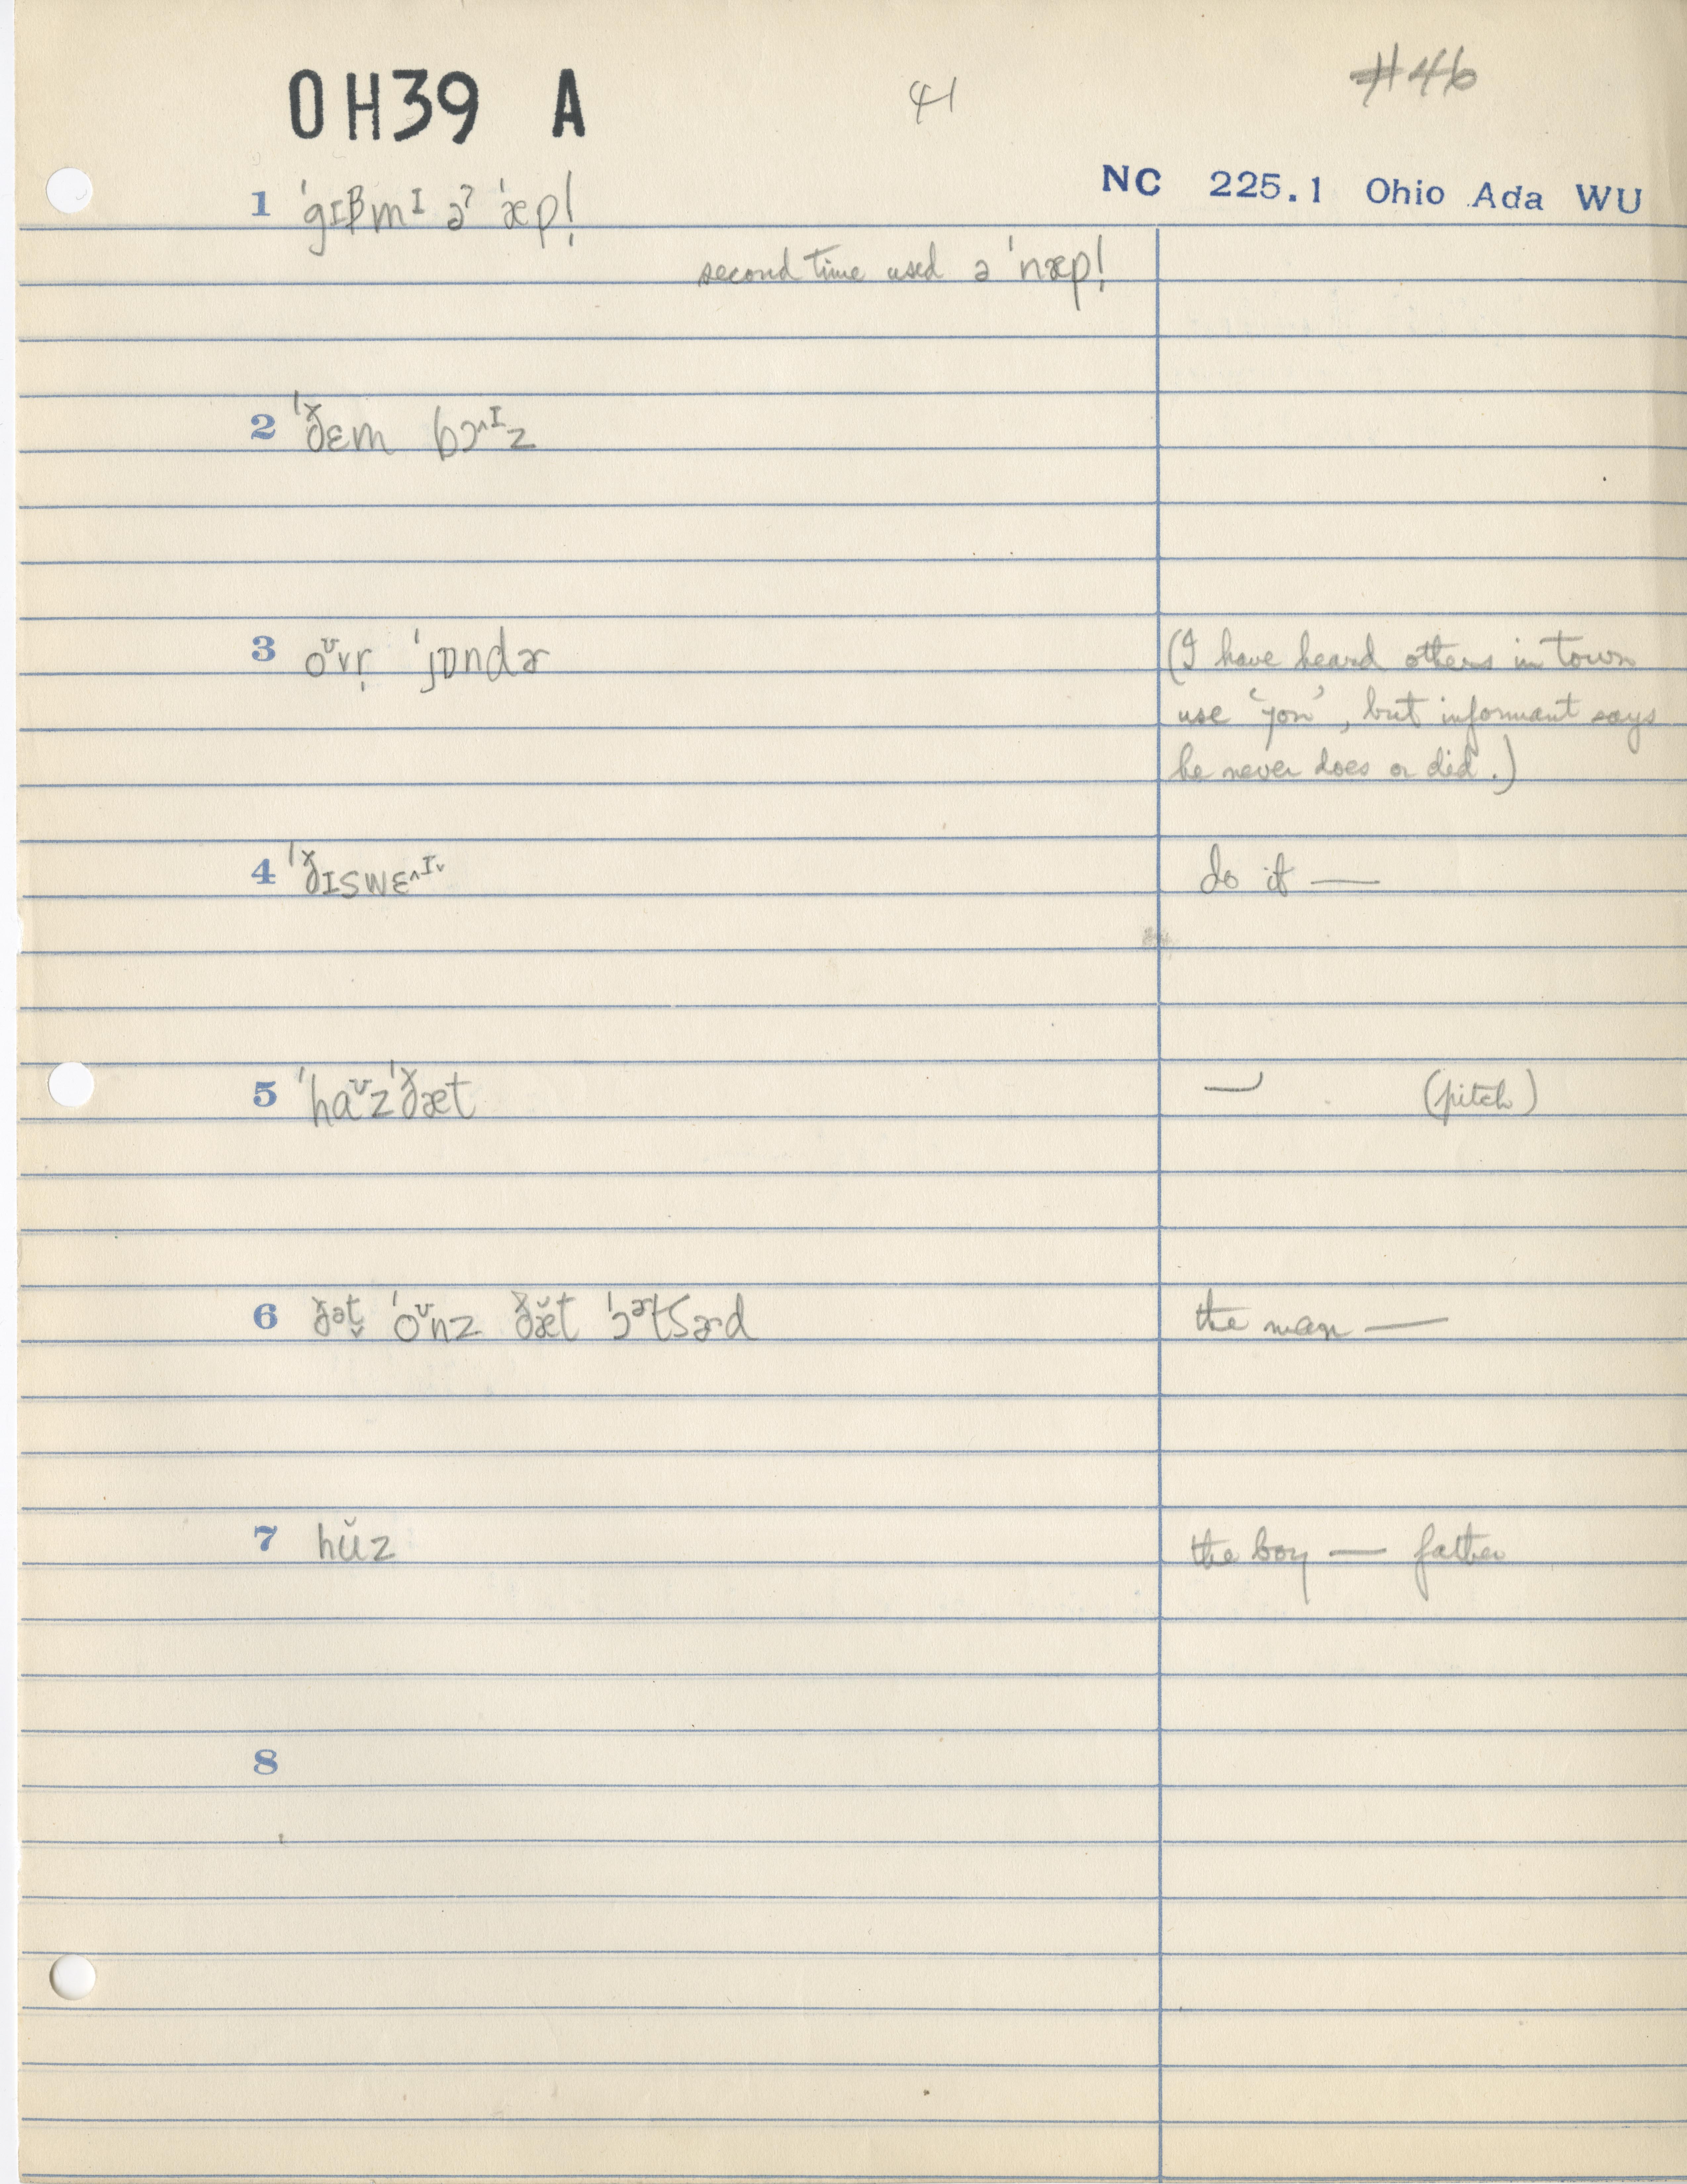 OH39 A
41
#46
NC 225.1 Ohio Ada WU
1 ˈgɪβmɪ əʔ ˈæp!
second time used ə ˈnæp!
2 ˈðɛm bɔ^ɪz
3 oᴜ̆vr̩ ˈjɒndɚ
(I have heard others in town
use 'yon', but informant says
he never does or did.)
4 ˈðɪswɛ^ɪˇ
do it —
5 ˈhaᴜ̆zˈðæt
(pitch)
6 ðət̬ ˈoᴜ̆nz ðæ̆t ˈɔɚtʃɚd
the man —
7 hŭz
the boy — father
8